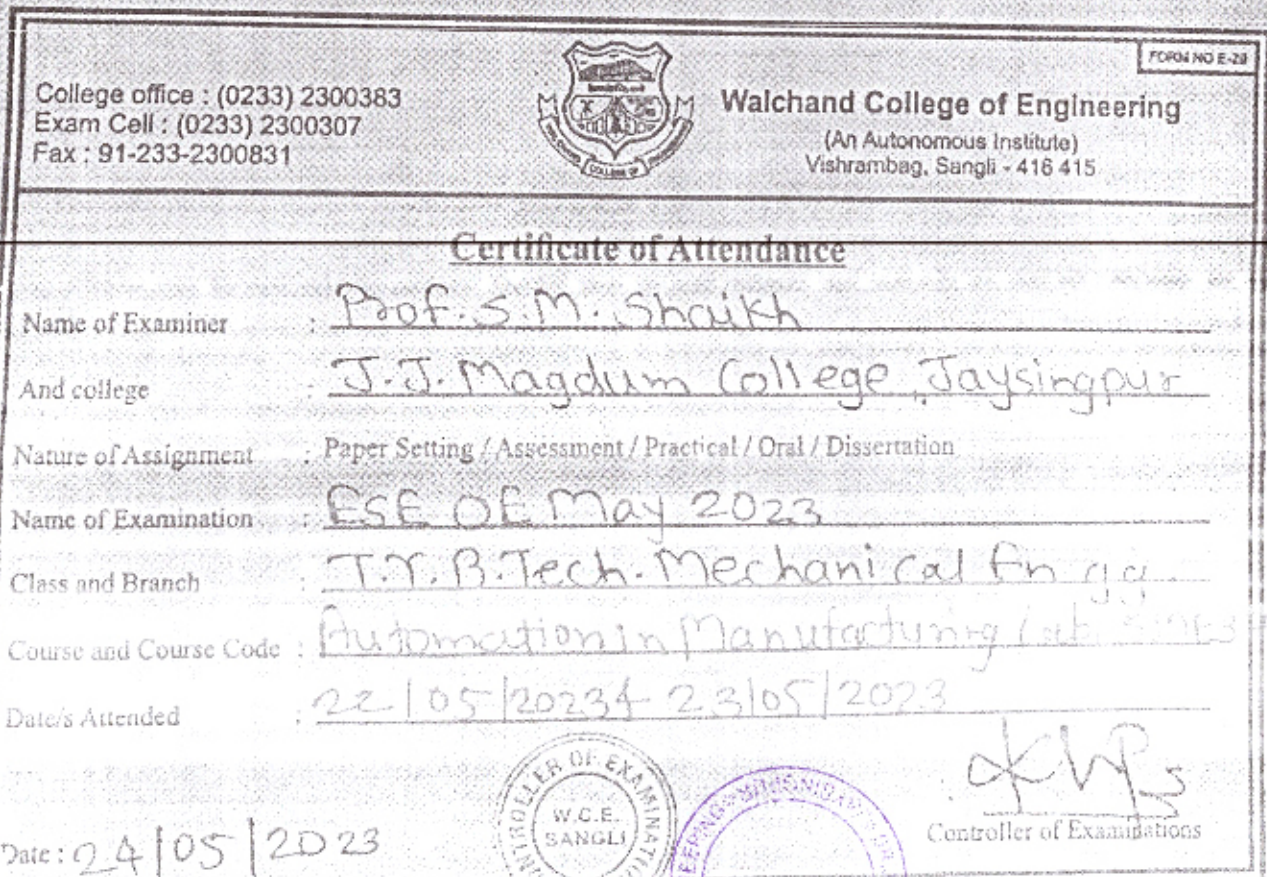 FORM NO E-29
College office : (0233) 2300383
Exam Cell : (0233) 2300307
Fax : 91-233-2300831
COLLEGE OF
Walchand College of Engineering
(An Autonomous Institute)
Vishrambag, Sangli - 416 415
Certificate of Attendance
Name of Examiner : Prof. S.M. Shaikh
And college : J.J. Magdum College, Jaysingpur
Nature of Assignment : Paper Setting / Assessment / Practical / Oral / Dissertation
Name of Examination : ESE OE May 2023
Class and Branch : T.Y. B.Tech. Mechanical Engg.
Course and Course Code : Automation in Manufacturing Lab.
Date/s Attended : 22/05/2023 & 23/05/2023
W.C.E.
SANGLI
Controller of Examinations
Date : 24/05/2023